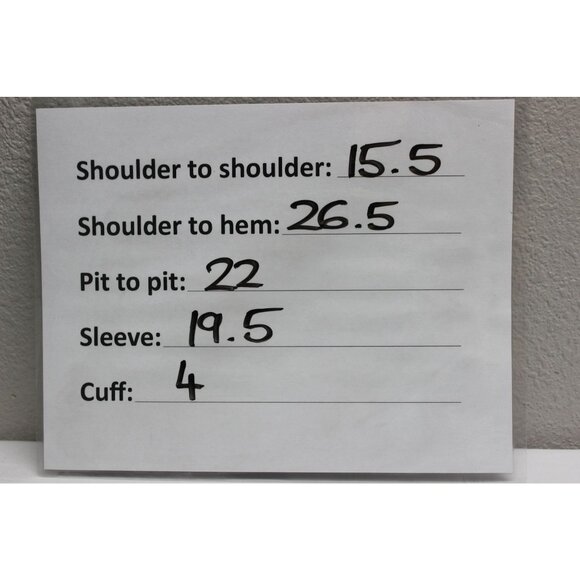 Shoulder to shoulder: 15.5
Shoulder to hem: 26.5
Pit to pit: 22
Sleeve: 19.5
Cuff: 4